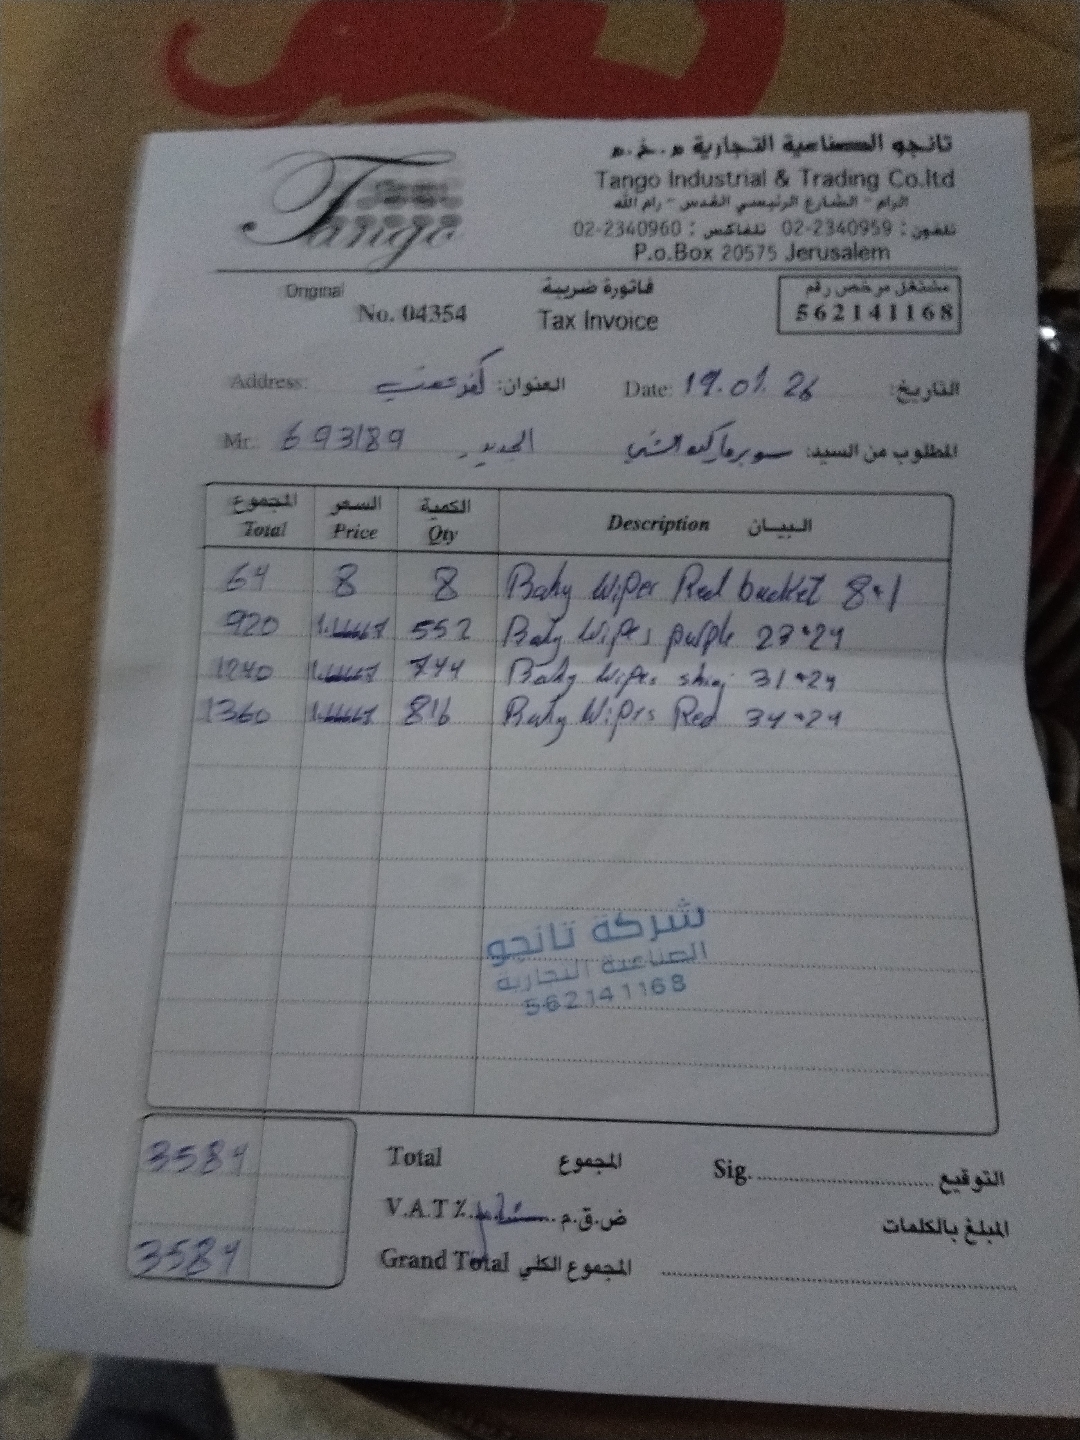 Tango
تانجو الصناعية التجارية م.خ.م
Tango Industrial & Trading Co.ltd
الرام - الشارع الرئيسي القدس - رام الله
تلفون : 02-2340959 تلفاكس : 02-2340960
P.o.Box 20575 Jerusalem
Original
No. 04354
فاتورة ضريبة
Tax Invoice
مشتغل مرخص رقم
562141168
التاريخ: Date: 19.01.26
العنوان: كفر Address:
المطلوب من السيد: سوبرماركت الجديد 693189 Mr.
المجموع السعر الكمية البيـــان
Total Price Qty Description
64 8 8 Baby Wipes Red bucket 8*1
920 552 Baby Wipes purple 23*24
1240 744 Baby Wipes 31*24
1360 816 Baby Wipes Red 34*24
شركة تانجو
الصناعية التجارية
562141168
3584 Total المجموع
Sig. التوقيع
V.A.T ٪ ض.ق.م شامل
المبلغ بالكلمات
3584 Grand Total المجموع الكلي